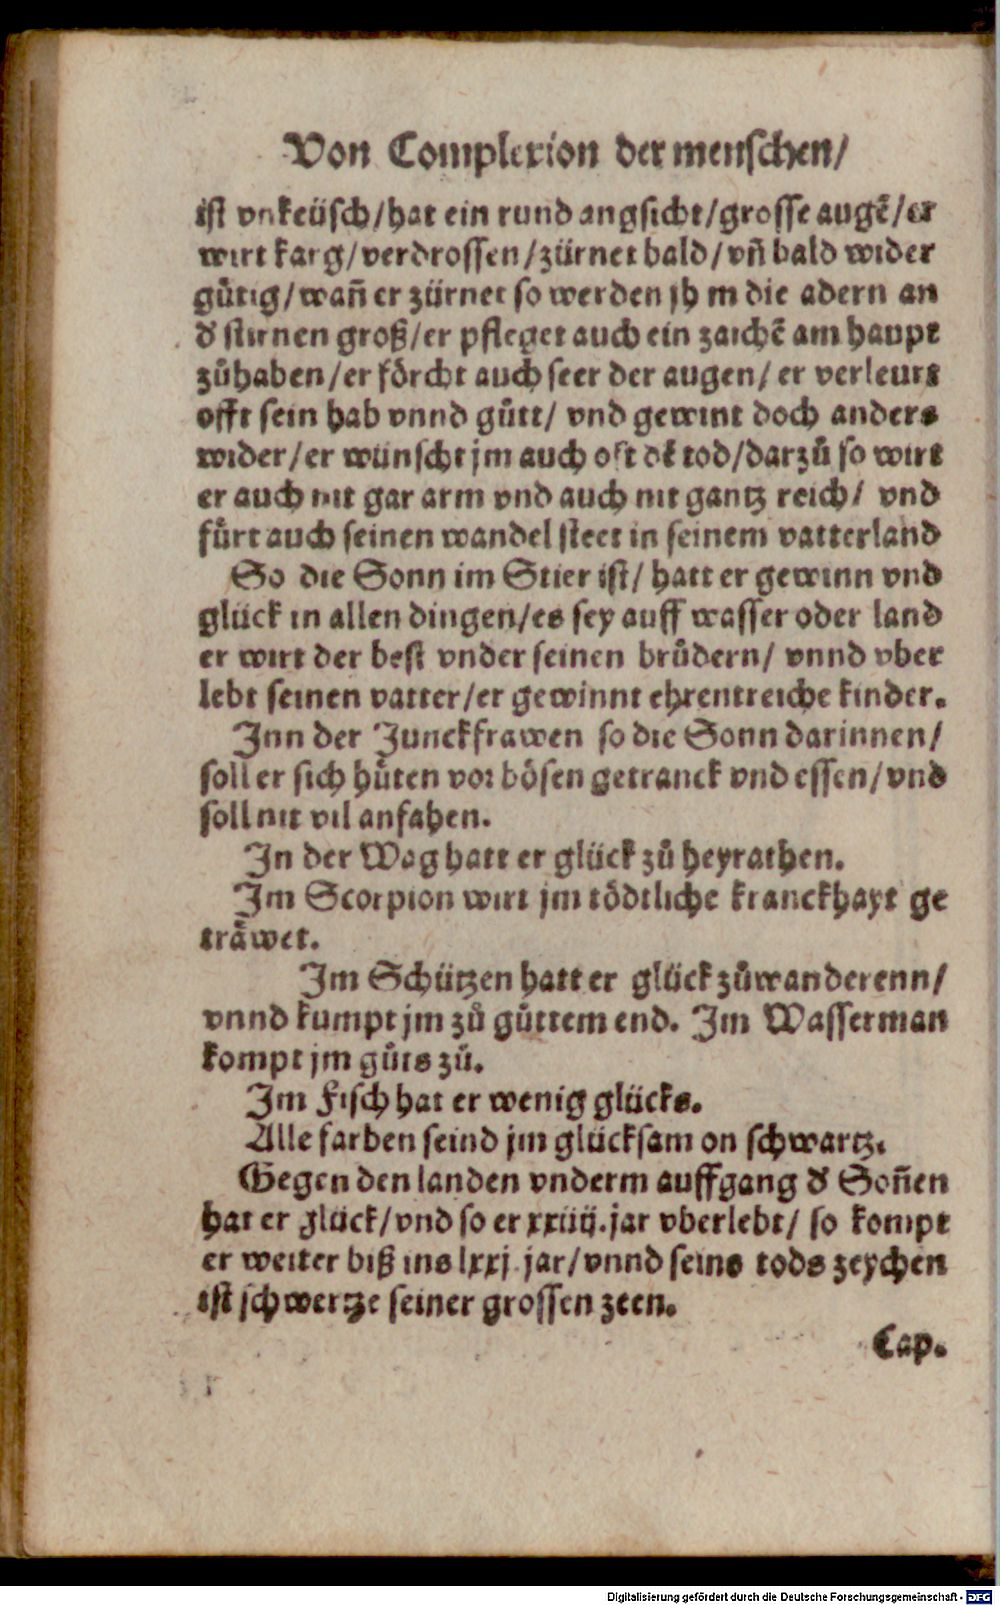 Von Complexion der menschen/
ist vnkeüsch/hat ein rund angsicht/grosse augē/er
wirt karg/verdrossen/zürnet bald/vñ bald wider
gůtig/wañ er zürnet so werden jhm die adern an
d' stirnen groß/er pfleget auch ein zaichē am haupt
zůhaben/er förcht auch seer der augen/ er verleurt
offt sein hab vnnd gůtt/ vnd gewint doch anders
wider/er wünscht jm auch oft dē tod/darzů so wirt
er auch nit gar arm vnd auch nit gantz reich/ vnd
fůrt auch seinen wandel steet in seinem vatterland
So die Sonn im Stier ist/ hatt er gewinn vnd
glück in allen dingen/es sey auff wasser oder land
er wirt der best vnder seinen brůdern/ vnnd vber
lebt seinen vatter/er gewinnt ehrentreiche kinder.
Inn der Junckfrawen so die Sonn darinnen/
soll er sich hůten vor bösen getranck vnd essen/vnd
soll nit vil anfahen.
In der Wag hatt er glück zů heyrathen.
Im Scorpion wirt jm tödtliche kranckhayt ge
träwet.
Im Schützen hatt er glück zůwanderenn/
vnnd kumpt jm zů gůttem end. Im Wasserman
kompt jm gůts zů.
Im Fisch hat er wenig glücks.
Alle farben seind jm glücksam on schwartz.
Gegen den landen vnderm auffgang d' Soñen
hat er glück/vnd so er xxiiij.jar vberlebt/ so kompt
er weiter biß ins lxxj.jar/vnnd seins tods zeychen
ist schwertze seiner grossen zeen.
Cap.
Digitalisierung gefördert durch die Deutsche Forschungsgemeinschaft - DFG